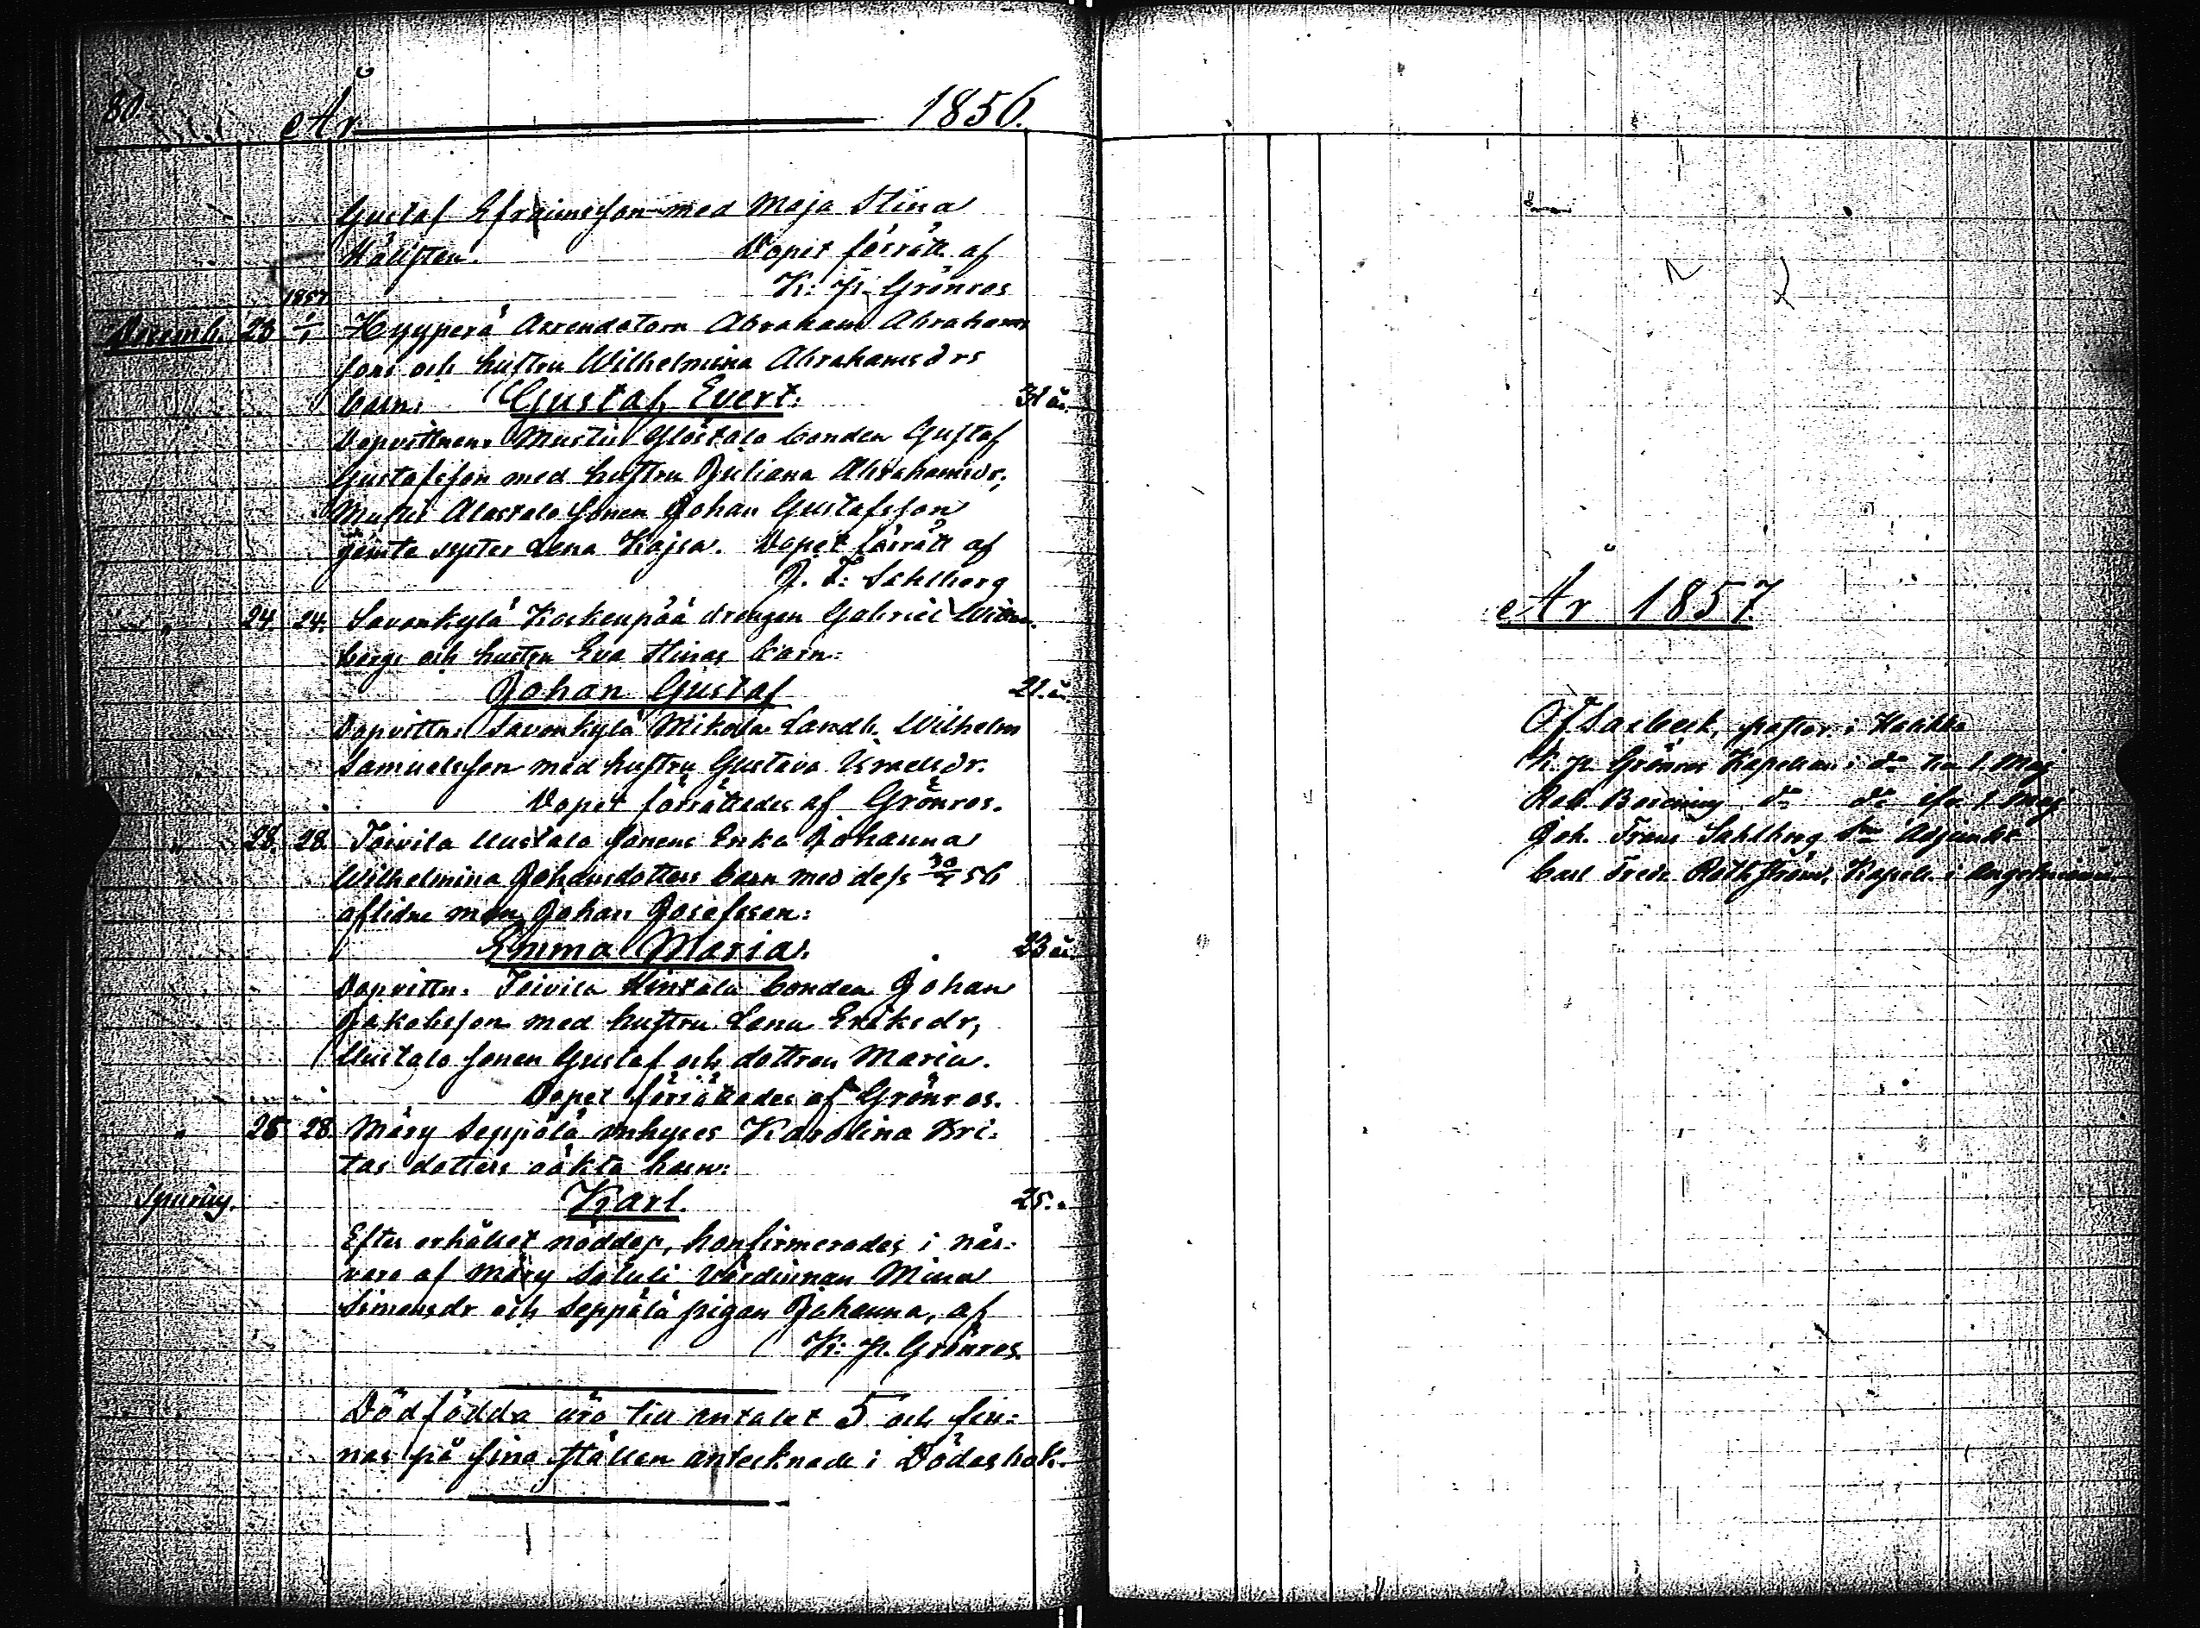 80.
År 1856.
Gustaf Efraimsson med Maja Stina
Hällsten. Dopet förrätt. af
K. P. Grönros
1857
Decemb. 28 1/1 Hyyperä Arrendatorn Abraham Abrahams
sons och hustru Wilhelmina Abrahamsdrs
barn: Gustaf Evert. 31 år
Dopvittnen: Mustio Ylöstalo bonden Gustaf
Gustafsson med hustru Juliana Abrahamsdr,
Mustio Alastalo sonen Johan Gustafsson
jemte syster Lena Kajsa. Dopet förrätt af
J. F. Sahlberg
" 24. 24. Savonkylä Koskenpää drengen Gabriel
bergs och hustru Eva Stinas barn:
Johan Gustaf 21. år
Dopvittn: Savonkylä Mikola Landb. Wilhelm
Samuelsson med hustru Gustava Israelsdr.
Dopet förrättades af Grönros.
" 28. 28. Toivila Uustalo sonens Enka Johanna
Wilhelmina Johansdotters barn med dess 56
aflidne man Johan Josefsson:
Emma Maria. 23 år
Dopvittn: Toivila Hintala bonden Johan
Jakobsson med hustru Lena Eriksdr,
Uustalo sonen Gustaf och dottren Maria.
Dopet förrättades af Grönros.
" 28 28. Märy Seppälä inhyses Karolina Kri-
tas dotters oäkta barn:
Karl. 25.
Efter erhållet nöddop, konfirmerades i när-
varo af Märy Värdinnan Mina
Simonsdr och Seppälä pigan Johanna, af
K. P. Grönros.
Dödfödda äro till antalet 5 och fin-
nas på sina ställen antecknade i Dödasbok.
År 1857.
pastor i
K. P. Grönros Kapellan i do till 1 Maj
Rob. do do efter 1 Maj
Joh. Frans Sahlberg Adjunkt
Carl Fredr. Kapell. i